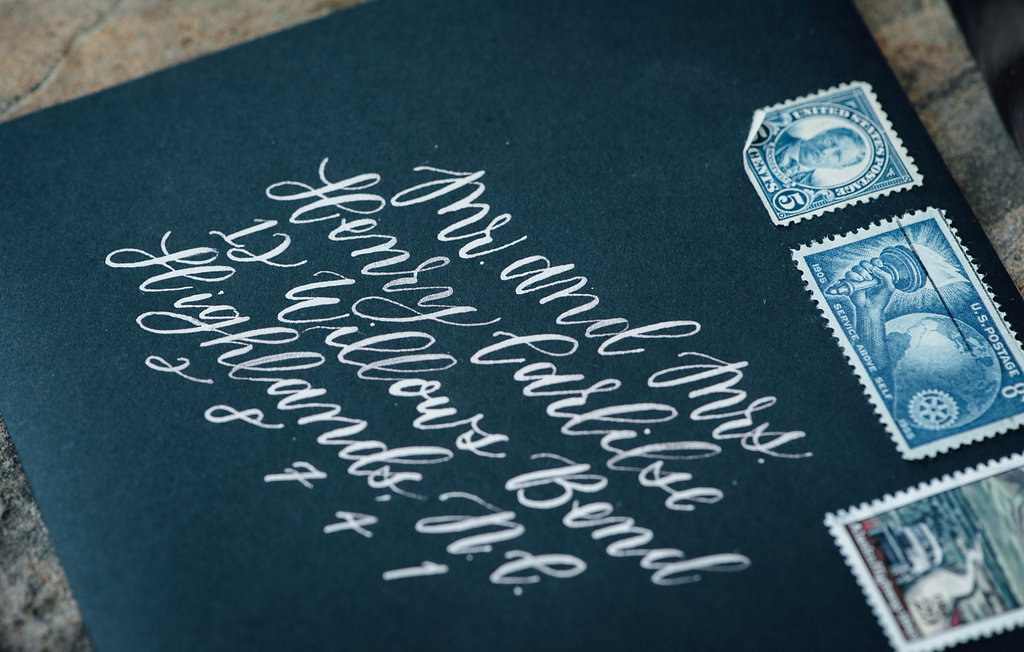 Mr. and Mrs.
Henry Carlilse
12 Willows Bend
Highlands, N.C.
2 8 7 4 1
UNITED STATES POSTAGE
CENTS 5
1905
SERVICE ABOVE SELF
1955
U.S. POSTAGE 8¢